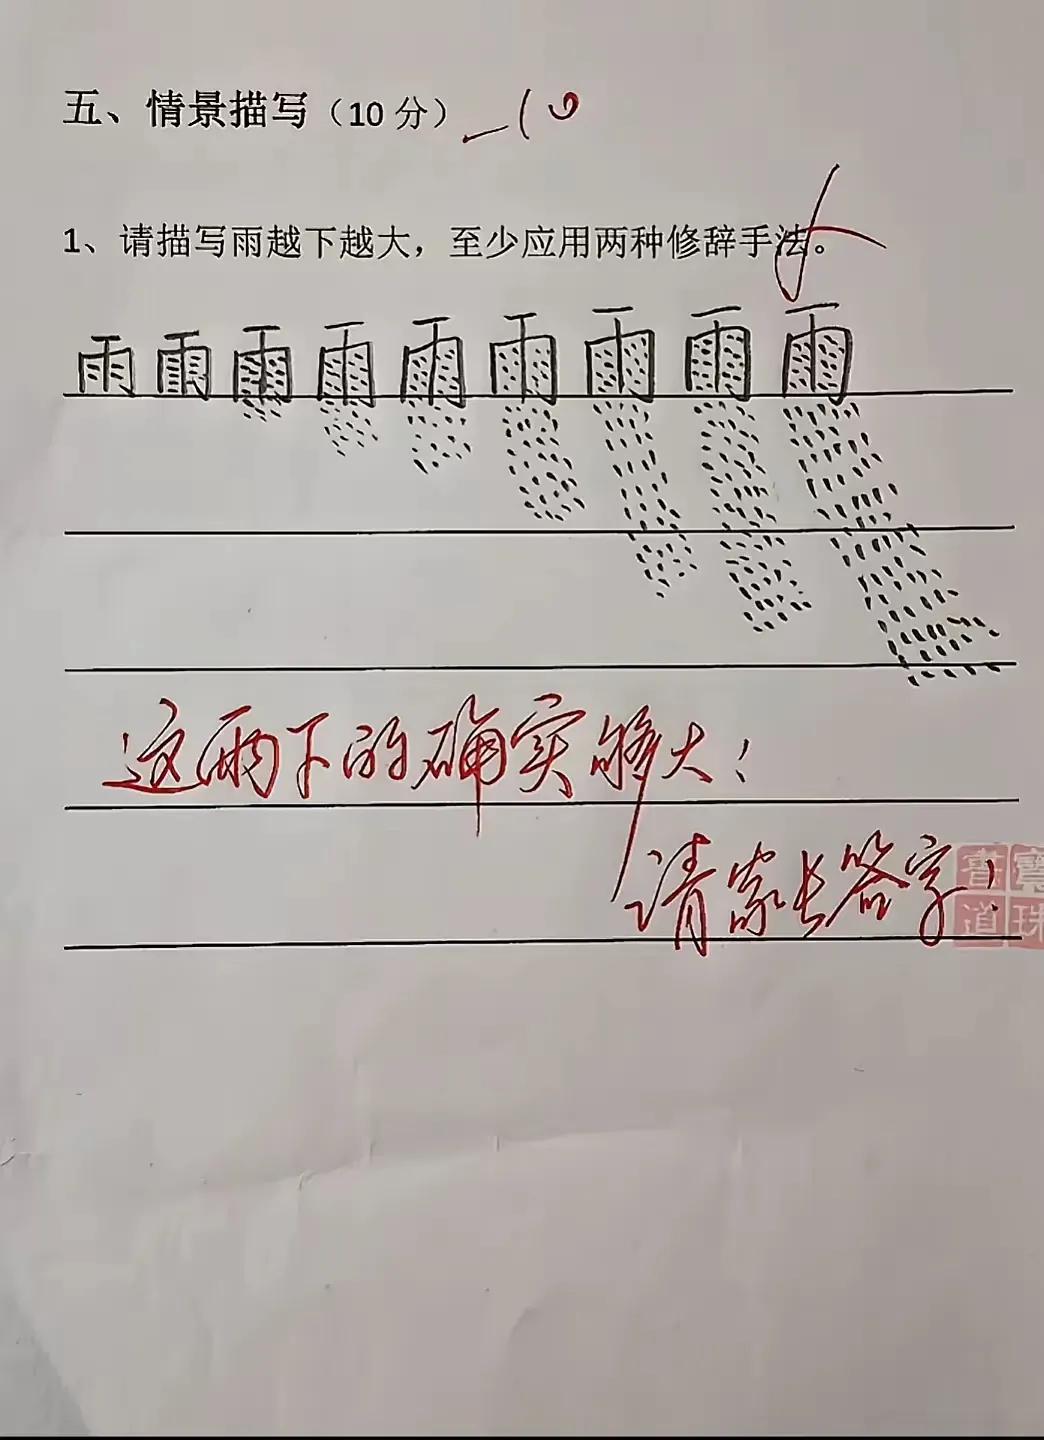 五、情景描写（10 分） -10
1、请描写雨越下越大，至少应用两种修辞手法。
雨雨雨雨雨雨雨雨雨
这雨下的确实够大！
请家长签字！
書寶
道珠